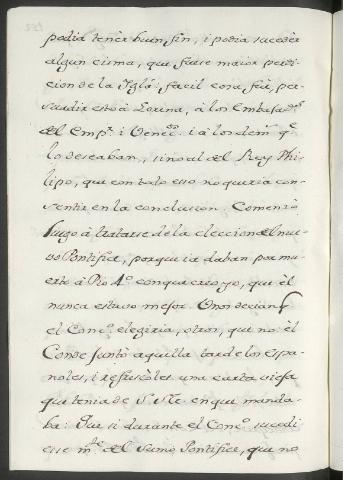 podia tener buen fin, i podia suceder
algun cisma, que fuese maior perdi
cion de la Iglª: facil cosa fue, per
suadir esto à Lorena, à los Embajadᵉˢ
del Empʳ i Venecⁿᵒˢ i à los demˢ qᵉ
lo deseaban, sino al del Rey Phi-
lipo, que con todo esso no queria con-
sentir en la conclusion. Comenzò
luego à tratarse de la eleccion del nue-
vo Pontifice, porque ia daban por mu-
erto à Pio 4º con que creo yo, que èl
nunca estuvo mejor. Unos decian q
el Concº elegiria, otros, que no: èl
Conde juntò aquella tarde los Espa-
ñoles, i refirioles una carta vieja
que tenia de S. Mᵉ. en que manda-
ba: Que si durante el Concº sucedi
esse mᵗᵉ del Sumo Pontifice, que no